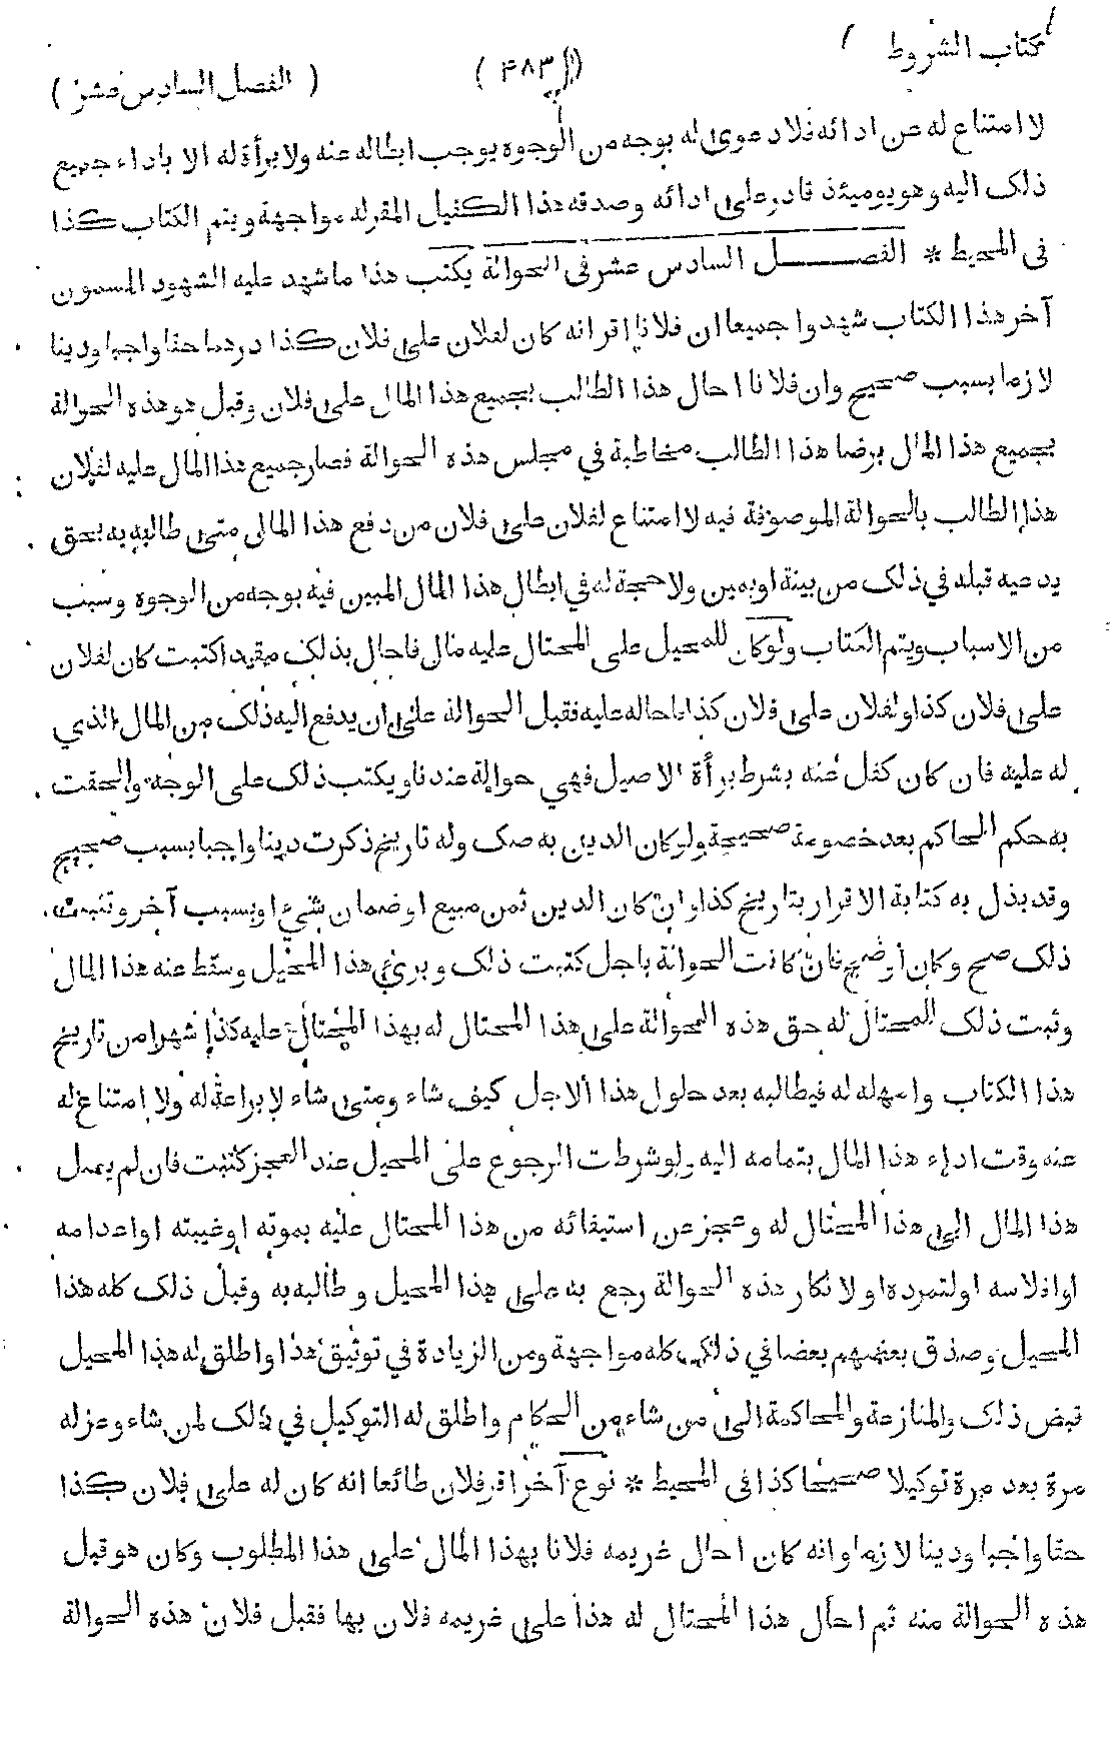 كتاب الشروط
(٤٨٣)
( الفصل السادس عشر )
لا امتناع له عن ادائه فلا دعوى له بوجه من الوجوه يوجب ابطاله عنه ولا برأة له الا باداء جميع
ذلك اليه وهو يوميئذ قادر على ادائه وصدقه هذا الكفيل المقر له مواجهة ويتم الكتاب كذا
فى المحيط * الفصل السادس عشر فى الحوالة يكتب هذا ما شهد عليه الشهود المسمون
آخر هذا الكتاب شهدوا جميعا ان فلانا اقر انه كان لفلان على فلان كذا درهما حقا واجبا ودينا
لازما بسبب صحيح وان فلانا احال هذا الطالب بجميع هذا المال على فلان وقبل هو هذه الحوالة
بجميع هذا المال برضا هذا الطالب مخاطبة في مجلس هذه الحوالة فصار جميع هذا المال عليه لفلان
هذا الطالب بالحوالة الموصوفة فيه لا امتناع لفلان على فلان من دفع هذا المال متى طالبه به بحق
يدعيه قبله في ذلك من بينة او يمين ولا حجة له في ابطال هذا المال المبين فيه بوجه من الوجوه وسبب
من الاسباب ويتم الكتاب ولو كان للمحيل على المحتال عليه مال فاحال بذلك مقيدا كتبت كان لفلان
على فلان كذا ولفلان على فلان كذا فاحاله عليه فقبل الحوالة على ان يدفع اليه ذلك من المال الذي
له عليه فان كان كفل عنه بشرط برأة الاصيل فهي حوالة عندنا ويكتب ذلك على الوجه والحقت
به حكم الحاكم بعد خصومة صحيحة ولو كان الدين به صك وله تاريخ ذكرت دينا واجبا بسبب صحيح
وقد بذل به كتابة الاقرار بتاريخ كذا وان كان الدين ثمن مبيع او ضمان شيء او بسبب آخر وتثبت
ذلك صح وكان أوضح فان كانت الحوالة باجل كتبت ذلك وبريء هذا المحيل وسقط عنه هذا المال
وثبت ذلك للمحتال له حق هذه الحوالة على هذا المحتال له بهذا المحتال عليه كذا شهرا من تاريخ
هذا الكتاب وامهله له فيطالبه بعد حلول هذا الاجل كيف شاء ومتى شاء لا براءة له ولا امتناع له
عنه وقت اداء هذا المال بتمامه اليه ولو شرطت الرجوع على المحيل عند العجز كتبت فان لم يصل
هذا المال الى هذا المحتال له وعجز عن استيفائه من هذا المحتال عليه بموته او غيبته او اعدامه
او افلاسه او لتمرده او لانكار هذه الحوالة رجع به على هذا المحيل وطالبه به وقبل ذلك كله هذا
المحيل وصدق بعضهم بعضا في ذلك كله مواجهة ومن الزيادة في توثيق هذا واطلق له هذا المحيل
قبض ذلك والمنازعة والمحاكمة الى من شاء من الحكام واطلق له التوكيل في ذلك لمن شاء وعزله
مرة بعد مرة توكيلا صحيحا كذا فى المحيط * نوع آخر اقر فلان طائعا انه كان له على فلان كذا
حقا واجبا ودينا لازما وانه كان احال غريمه فلانا بهذا المال على هذا المطلوب وكان هو قبل
هذه الحوالة منه ثم احال هذا المحتال له هذا على غريمه فلان بها فقبل فلان هذه الحوالة